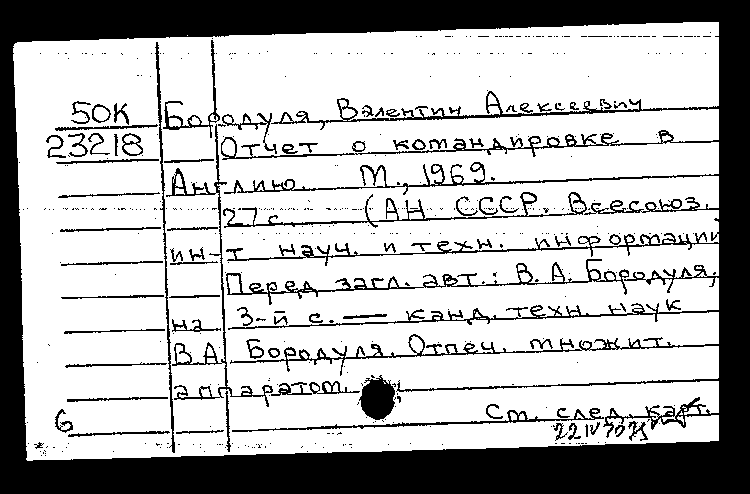 50К Бородуля, Валентин Алексеевич
23218 Отчет о командировке в
Англию. М., 1969.
27 с. (АН СССР. Всесоюз.
ин-т науч. и техн. информации
Перед загл. авт.: В. А. Бородуля,
на 3-й с. — канд. техн. наук
В.А. Бородуля. Отпеч. множит.
аппаратом.
6 См. след. карт.